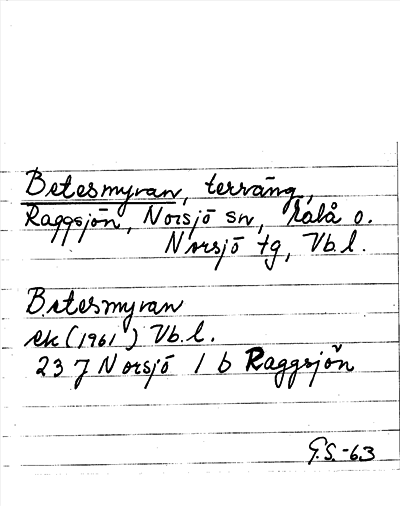 Betesmyran, terräng,
Raggsjön, Norsjö sn, Malå o.
Norsjö tg, Vb.l.
Betesmyran
ek (1961) Vb.l.
23 J Norsjö 1 b Raggsjön
G.S.-63